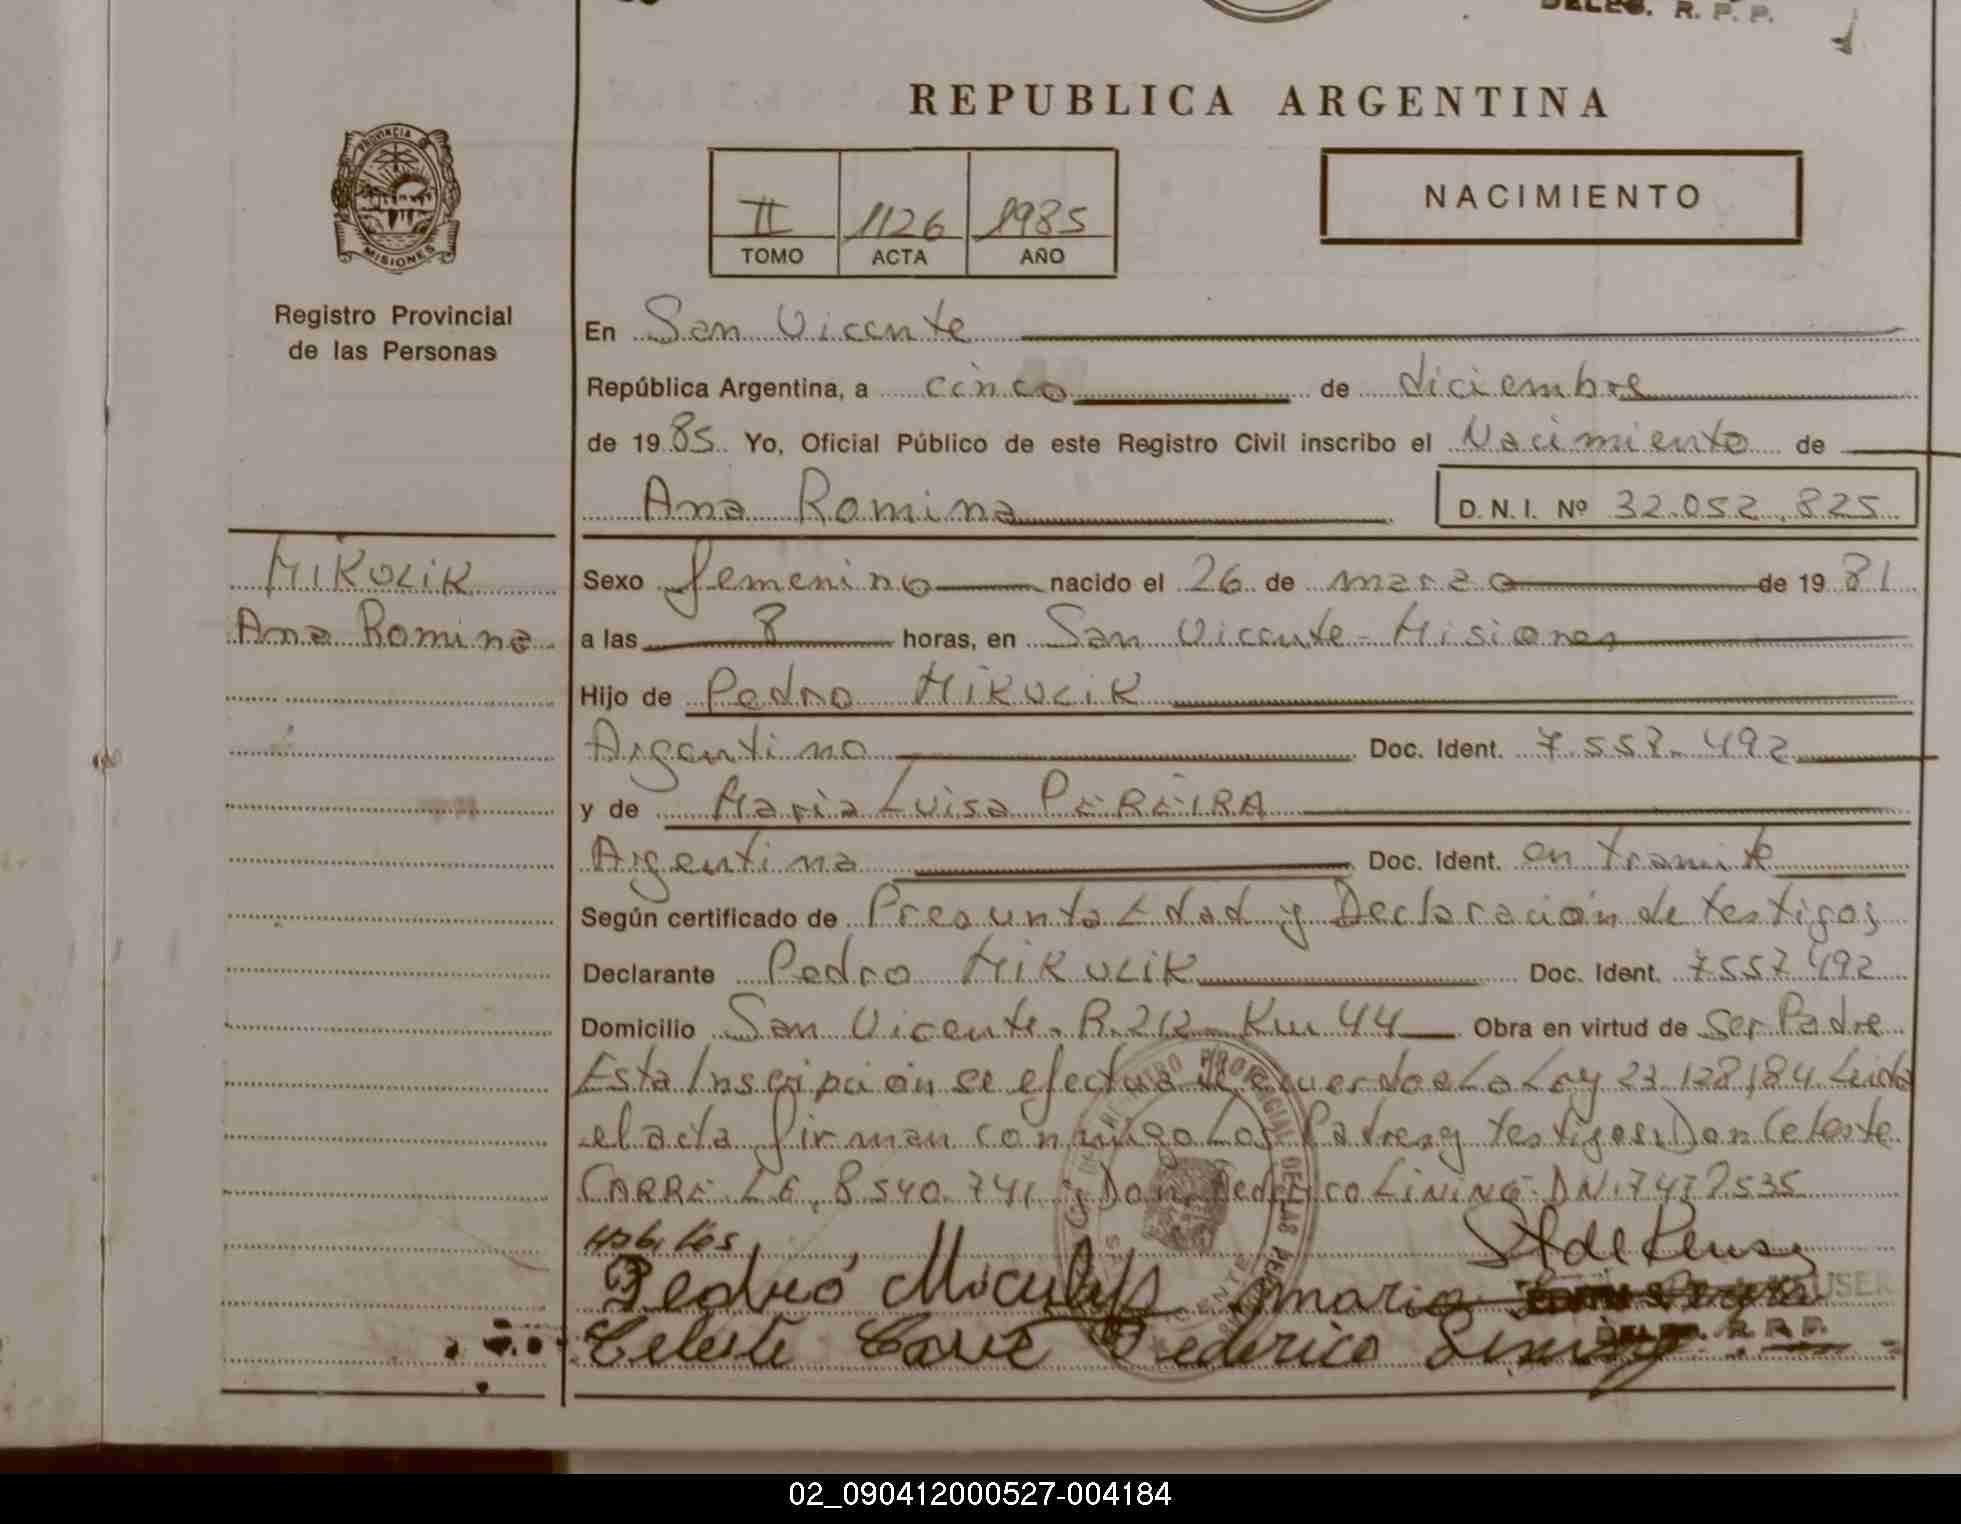 DELEG. R. P. P.
REPUBLICA ARGENTINA
PROVINCIA
MISIONES
II 1126 1985
TOMO ACTA AÑO
NACIMIENTO
Registro Provincial
de las Personas
En San Vicente
República Argentina, a cinco de diciembre
de 1985 Yo, Oficial Público de este Registro Civil inscribo el Nacimiento de
Ana Romina D. N. I. Nº 32.052.825
MIKULIK
Ana Romina
Sexo femenino nacido el 26 de marzo de 1981
a las 8 horas, en San Vicente - Misiones
Hijo de Pedro MIKULIK
Argentino Doc. Ident. 7.557.492
y de Maria Luisa PEREIRA
Argentina Doc. Ident. en tramite
Según certificado de Presunta Edad y Declaración de testigos
Declarante Pedro MIKULIK Doc. Ident. 7557492
Domicilio San Vicente. R. 212 Km 44 Obra en virtud de Ser Padre
Esta Inscripción se efectua de acuerdo a La Ley 23.128/84 Leida
el acta firman conmigo Los Padres y testigos: Don Celeste
CARRE L.E. 8.540.741 y Don Federico LINING
habiles
Pedro Maria
Celeste Carre Federico Lining
DELEG. R. P. P.
02_090412000527-004184